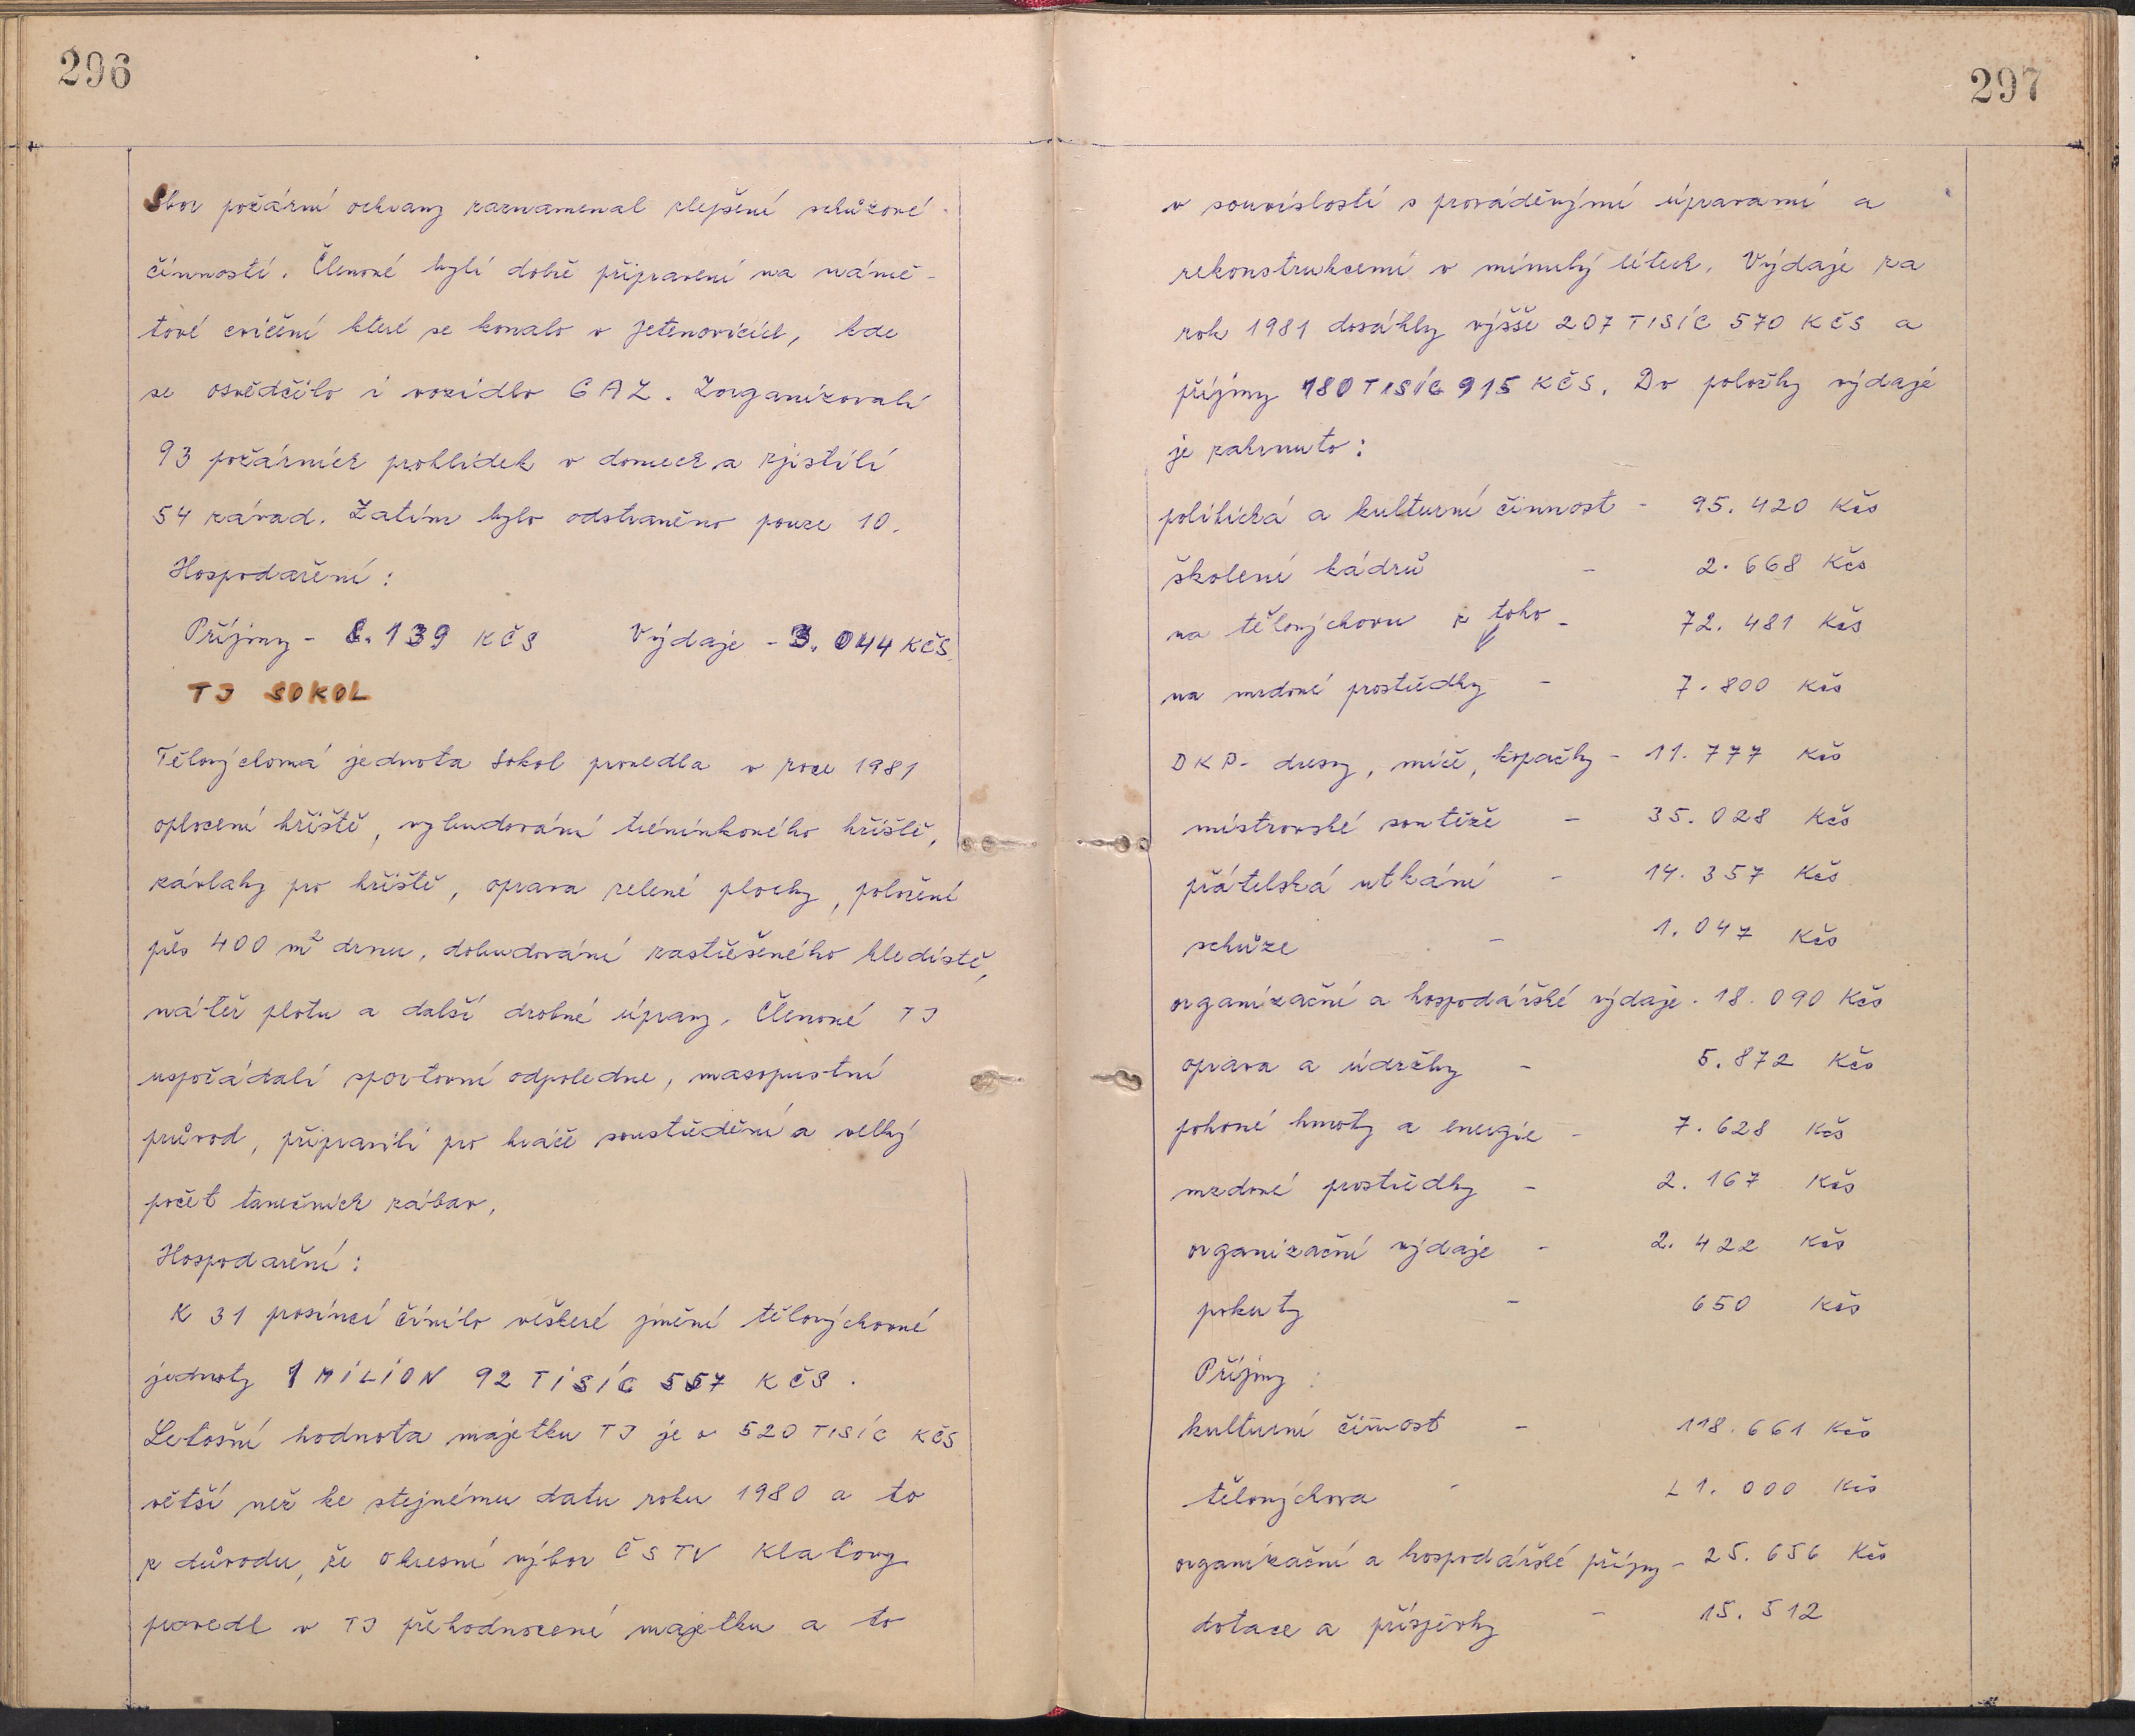 296
Sbor požární ochrany zaznamenal zlepšení schůzové
činností. Členové byli dobře připravení na námě-
tové cvičení které se konalo v Jetenovicích, kde
se osvědčilo i vozidlo GAZ. Zorganizovali
93 požárních prohlídek v domech a zjistili
54 závad. Zatím bylo odstraněno pouze 10.
Hospodaření:
Příjmy - 6.139 KČS Výdaje - 3.044 KČS
TJ SOKOL
Tělovýchovná jednota Sokol provedla v roce 1981
oplocení hřiště, vybudování tréninkového hřiště,
závlahy pro hřiště, oprava zelené plochy, položení
přes 400 m² drnu, dobudování zastřešeného hlediště,
nátěr plotu a další drobné úpravy. Členové TJ
uspořádali sportovní odpoledne, masopustní
průvod, připravili pro hráče soustředění a velký
počet tanečních zábav.
Hospodaření:
K 31 prosinci činilo veškeré jmění tělovýchovné
jednoty 1 MILION 92 TISÍC 557 KČS.
Letošní hodnota majetku TJ je o 520 TISÍC KČS
větší než ke stejnému datu roku 1980 a to
z důvodu, že okresní výbor ČSTV Klatovy
provedl v TJ přehodnocení majetku a to
297
v souvislosti s prováděnými úpravami a
rekonstrukcemi v minulý létech. Výdaje za
rok 1981 dosáhly výšše 207 TISÍC 570 KČS a
příjmy 180 TISÍC 915 KČS. Do položky výdajé
je zahrnuto:
politická a kulturní činnost - 95.420 Kčs
školení kádrů - 2.668 Kčs
na tělovýchovu z toho - 72.481 Kčs
na mzdové prostředky - 7.800 Kčs
DKP - dresy, míče, kopačky - 11.777 Kčs
mistrovské soutěže - 35.028 Kčs
přátelská utkání - 14.357 Kčs
schůze - 1.047 Kčs
organizační a hospodářské výdaje - 18.090 Kčs
oprava a údržby - 5.872 Kčs
pohoné hmoty a energie - 7.628 Kčs
mzdové prostředky - 2.167 Kčs
organizační výdaje - 2.422 Kčs
pokuty - 650 Kčs
Příjmy :
kulturní čin̄ost - 118.661 Kčs
tělovýchova - 21.000 Kčs
organizační a hospodářské příjmy - 25.656 Kčs
dotace a příspěvky - 15.512